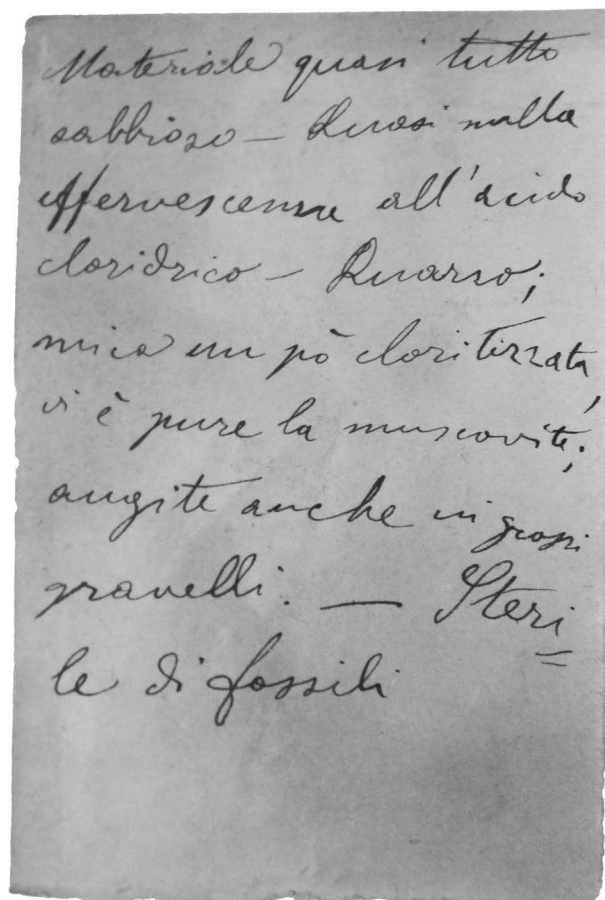 Materiale quasi tutto
sabbioso — Quasi nulla
effervescenza all'acido
cloridrico — Quarzo;
mica un pò cloritizzata,
vi è pure la muscovite;
augite anche in grossi
granelli. — Steri=
le di fossili